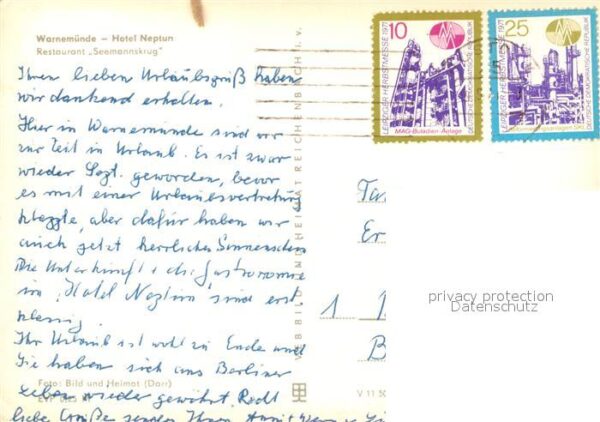 Warnemünde – Hotel Neptun
Restaurant „Seemannskrug"
Ihren lieben Urlaubsgruß haben
wir dankend erhalten.
Hier in Warnemünde sind wir
zur Zeit in Urlaub. Es ist zwar
wieder Sept. geworden, bevor
es mit einer Urlaubsvertretung
klappte, aber dafür haben wir
auch jetzt herrlichen Sonnenschein
Die Unterkunft & die Gastronomie
im „Hotel Neptun" sind erst
klassig.
Ihr Urlaub ist wohl zu Ende und
Sie haben sich ans Berliner
Foto: Bild und Heimat (Darr)
Leben wieder gewöhnt. Recht
EVP
liebe Grüße senden Ihnen
VEB BILD UND HEIMAT REICHENBACH i. V.
V 11 50
10
LEIPZIGER HERBSTMESSE 1971
DEUTSCHE DEMOKRATISCHE REPUBLIK
MAG-Butadien-Anlage
25
LEIPZIGER HERBSTMESSE 1971
DEUTSCHE DEMOKRATISCHE REPUBLIK
Er
1
B
privacy protection
Datenschutz